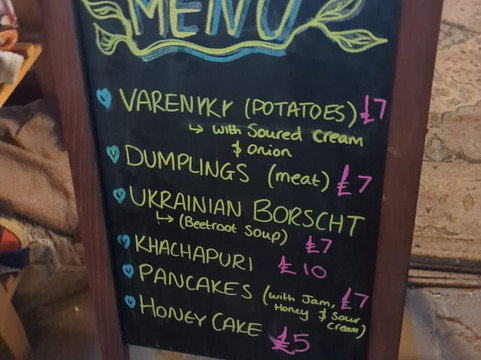 MENU
VARENYKY (POTATOES) £7
↳ with Soured Cream
& onion
DUMPLINGS (meat) £7
UKRAINIAN BORSCHT
↳ (Beetroot Soup) £7
KHACHAPURI £10
PANCAKES (with Jam, £7
Honey & Sour
Cream)
HONEY CAKE £5